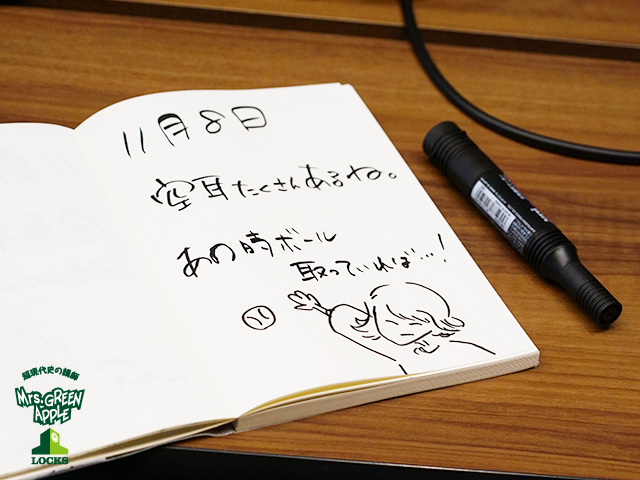 11月8日
空耳たくさんあるね。
あの時ボール
取っていれば…!
超現代史の講師
Mrs. GREEN
APPLE
LOCKS